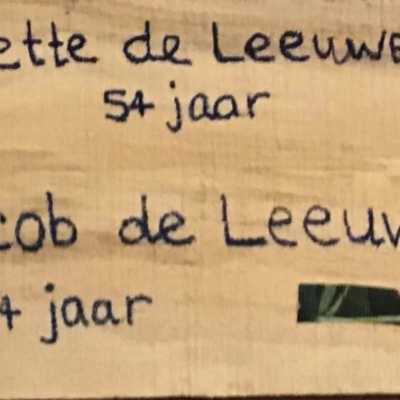 ette de Leeuwe
54 jaar
cob de Leeuw
4 jaar